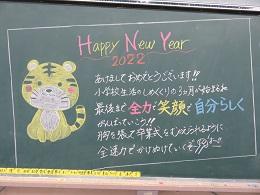 Happy New Year
2022
あけましておめでとうございます!!
小学校生活のしめくくりの3ヵ月が始まるね
最後まで全力で笑顔で自分らしく
がんばっていこう!!
胸を張って卒業式をむかえられるように
全速力でかけぬけていくぞ